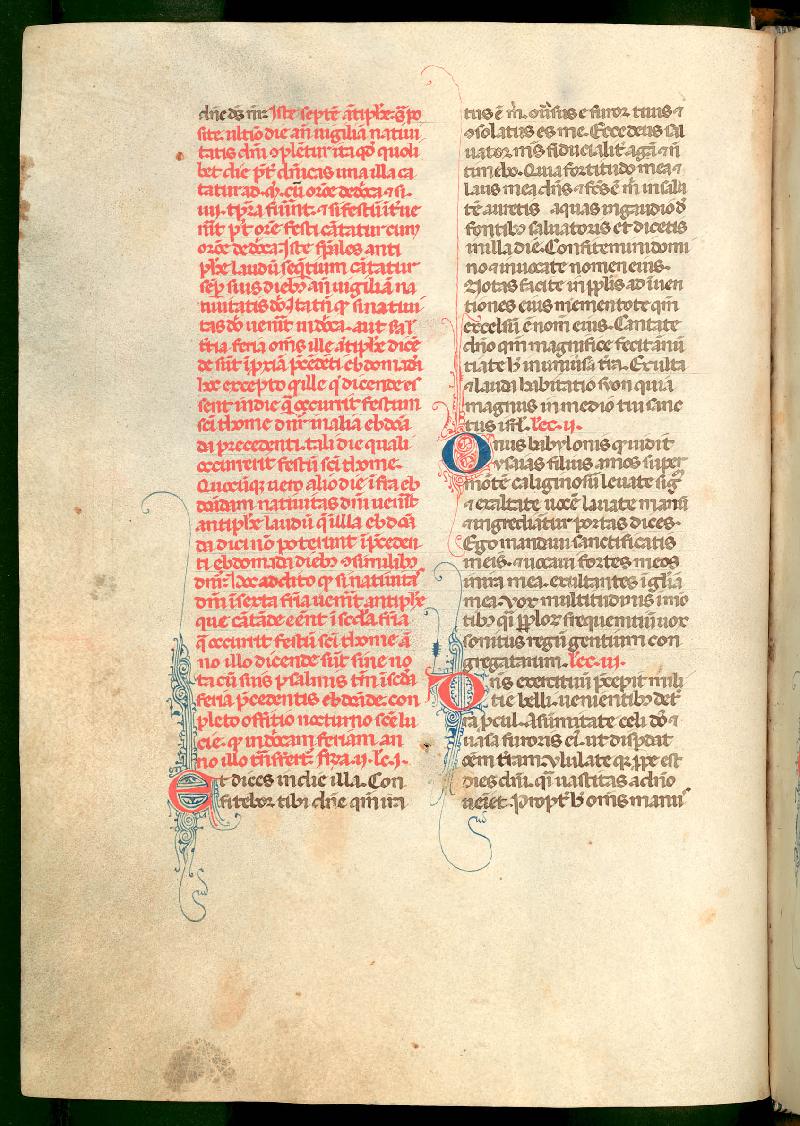 dñe ds nr̄. Iste septē ãtiphe. q̃ po
site. ultiō die añ uigiliã natiui
tatis dñi cplētur ita qd̾ quoli
bet die p̃t dñicas una illa cā
tatur ad. cū orōe de dñca ⁊ si.
iiii. tpr̃a fiunt. ⁊ si festū it'ue
orōe de dñca. Iste sp̃iles anti
phe laudū seq̃tium cãtatur
sep̱ suis dieb; añ uigiliã na
tiuitatis dñi. Ita tñ q̱ si natiui
tas dñi uen̾it in dñca. aut sal
tr̄ia feria om̃s ille ãtiphe dicē
de sūt ī p̱ria p̃cedēti ebdomada
hoc excepto q̱ ille q̃ dicende es
sent in die q̃ occurrit festum
sci thome dñr in alia ebdoā
da precedenti. tali die quali
occurrerit festū sci thome.
Quocūq; uero alio die ī fra eb
doādam natiuitas dñi uen̾it
antiphe laudū q̃ ī illa ebdoā
da dici nō poterunt ī p̃ceden
ti ebdomada dieb; cōsimilib;
dñr. hoc adito q̱ si natiuitas
dñi ī sexta fr̃ia uen̾it antiphe
que cãtãde eēnt ī scd̃a fr̃ia
q̃ occurrit festū sci thome ã
no illo dicende sūt sine no
ta cū suis psalmis tñ ī scd̃a
feria p̃cedentis ebdoãde. con
pleto offitio nocturno scd̾m lu
cie. q̱ in dñcam feriam an
no illo tr̃ñsfert̾. fr̃a. ii. lc̄. i.
Et dices in die illa. Con
fitebor tibi dñe qm̃ ira
tus ē m̾. cōu̾sus ē furor tuus ⁊
cōsolatus es me. Ecce deus sal
uator ms̄ fiducialit̾ agã ⁊ ñ
timebo. Quia fortitudo mea ⁊
laus mea dñs ⁊ fc̄s ē m̾ in salu
tē. aurietis aquas in gaudio d̾
fontib; saluatoris et dicetis
in illa die. Confitemini domi
no ⁊ inuocate nomen eius.
Notas facite in pp̱lis ad inuen
tiones eius mementote qm̃
excelsū ē nom̄ eius. Cantate
dño qm̃ magnifice fecit ãnū
tiate h̾ in uniu̾sa tr̃a. Exulta
⁊ lauda habitatio syon quia
magnus in medio tui sanc
tus isrl̾. lec. ii.
Onus babylonis q̾ uidit
ysaias filius amos super
mōtē caliginosū leuate sig̾
⁊ exaltate uocē leuate manū
⁊ ingrediãtur portas dices.
Ego mandaui sanctificatis
meis. ⁊ uocaui fortes meos
in ira mea. exultantes ī gl̃ia
mea. Vox multitudinis in mō
tib; q̃i pp̱lor̾ frequentiū uox
sonitus regū gentium con
gregatarum. lec. iii.
Dns exercituū p̃cepit mili
tie belli. uenientib; de t̾
ra p̱cul. A sumitate celi dñs ⁊
uasa furoris ei̾. ut disp̱dat
oēm tr̃am. Vlulate qr̾ p̱pe est
dies dñi. q̃i uastitas a dño
ueiet. Propt̾ h̾ om̃s manus